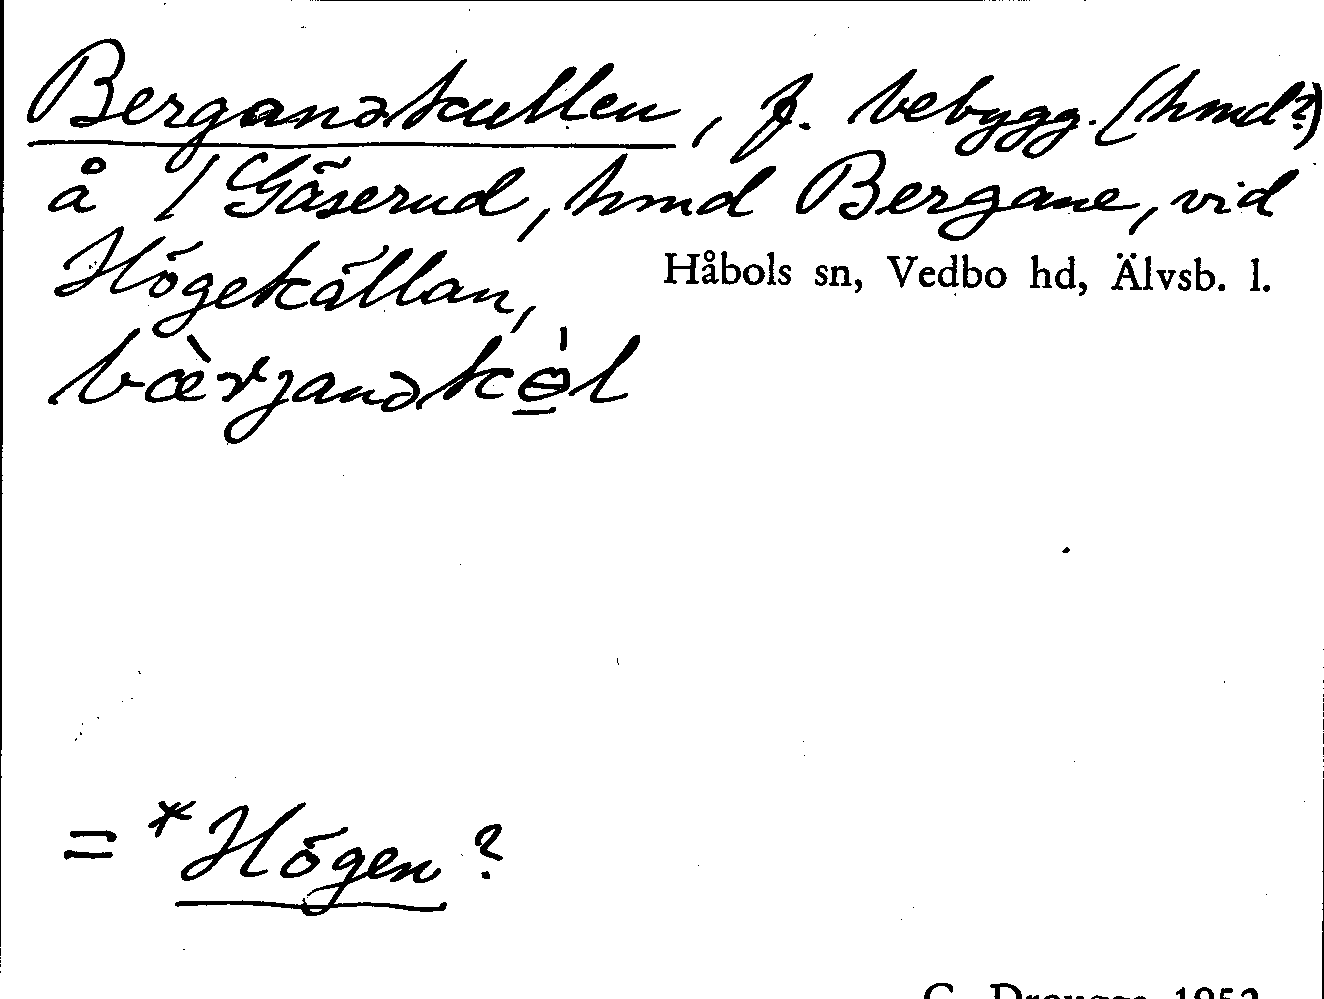 Berganəkullen, f. bebygg. (hmd?)
å 1/ Gäserud, hmd Bergane, vid
Högekällan, Håbols sn, Vedbo hd, Älvsb. l.
bæ̀rjanəkɵ̠̍l
= *Högen ?